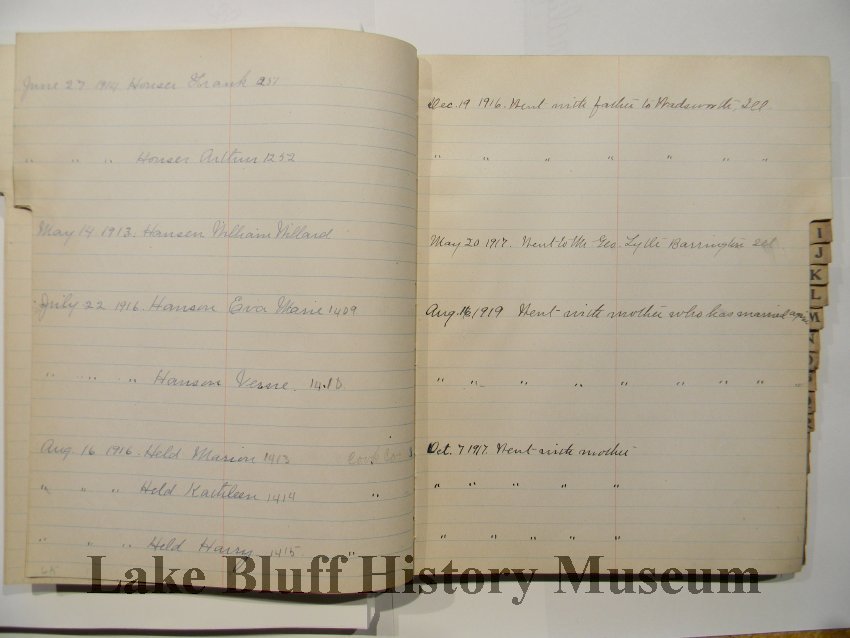 June 27 1914 Houser Frank 1251
" " " Houser Arthur 1252
May 14 1913. Hansen William Willard
July 22 1916. Hanson Eva Marie 1409
" " " " Hanson Verne. 1410
Aug. 16 1916. Held Marion 1413 Cook Co
" " " Held Kathleen 1414 "
" " " Held Harry 1415 "
Dec. 19 1916. Went with father to Wadsworth, Ill.
" " " " " " "
May 20 1917. Went to Mr Geo. Lytle Barrington Ill
Aug. 16, 1919 Went with mother who has married again
" " " " " " " "
Oct. 7 1917. Went with mother
" " " " "
" " " " "
I
J
K
L
M
Lake Bluff History Museum